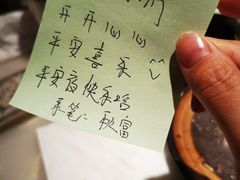 们
开开心心
平安喜乐
平安夜快乐哈
朱笔：秋富